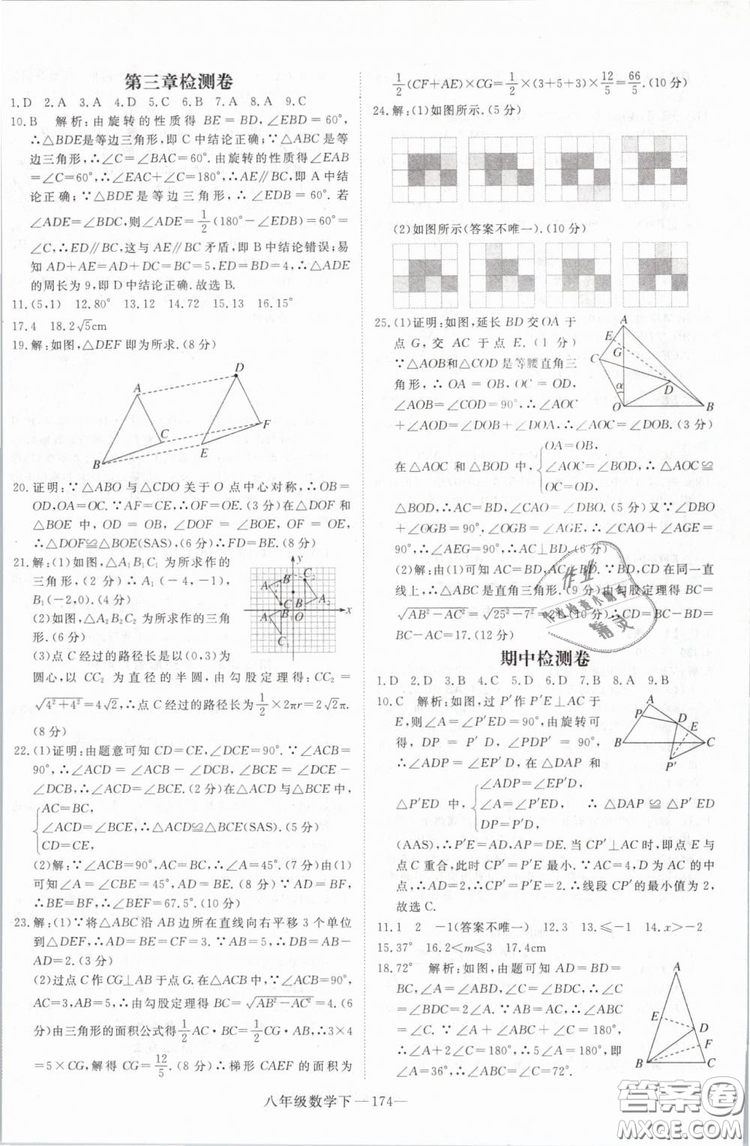 第三章检测卷
1.D 2.A 3.A 4.D 5.C 6.B 7.A 8.A 9.C
10.B 解析:由旋转的性质得 BE=BD,∠EBD=60°,
∴△BDE是等边三角形,即 C 中结论正确;∵△ABC 是等
边三角形,∴∠C=∠BAC=60°.由旋转的性质得∠EAB
=∠C=60°,∴∠EAC+∠C=180°,∴AE∥BC,即 A 中结
论正确;∵△BDE 是等边三角形,∴∠EDB=60°.若
∠ADE=∠BDC,则∠ADE=1/2(180°-∠EDB)=60°=
∠C,∴ED∥BC,这与 AE∥BC 矛盾,即 B 中结论错误;易
知 AD+AE=AD+DC=AC=5,DE=BD=4,∴△ADE
的周长为 9,即 D 中结论正确.故选 B.
11.(5,1) 12.80° 13.12 14.72 15.9 16.15°
17.4 18.2√5cm
19.解:如图,△DEF 即为所求.(8分)
A D C F B E
20.证明:∵△ABO 与△CDO 关于 O 点中心对称,∴OB=
OD,OA=OC.∵AF=CE,∴OF=OE.(3分)在△DOF
和△BOE 中,OB=OD,∠DOF=∠BOE,OF=OE,
∴△DOF≌△BOE(SAS),(6分)∴FD=BE.(8分)
21.解:(1)如图,△A₁B₁C₁ 为所求作的
三角形,(2分)∴A₁(-4,-1),
B₁(-2,0).(4分)
(2)如图,△A₂B₂C₂ 为所求作的
三角形.(6分)
(3)点 C 经过的路径长是以(0,3)为
圆心,以 CC₂ 为直径的半圆,由勾股定理得 CC₂=
√(4²+4²)=4√2,∴点 C 经过的路径长为1/2×2πr=2√2π.
(8分)
22.(1)证明:由题意可知 CD=CE,∠DCE=90°.∵∠ACB=
90°,∴∠ACD=∠ACB-∠DCB,∠BCE=∠DCE-
∠DCB,∴∠ACD=∠BCE.(2分)在△ACD 与△BCE 中,
AC=BC,
∠ACD=∠BCE,∴△ACD≌△BCE(SAS).(5分)
CD=CE,
(2)解:∵∠ACB=90°,AC=BC,∴∠A=45°.(7分)由(1)
可知∠A=∠CBE=45°,AD=BE.(8分)∵AD=BF,
∴BE=BF,∴∠BEF=67.5°.(10分)
23.解:(1)∵将△ABC 沿 AB 边所在直线向右平移 3 个单位
到△DEF,∴AD=BE=CF=3.∵AB=5,∴DB=AB-
AD=2.(3分)
(2)过点 C 作 CG⊥AB 于点 G.在△ACB 中,∵∠ACB=90°,
AC=3,AB=5,∴由勾股定理得 BC=√(AB²-AC²)=4.(6
分)由三角形的面积公式得1/2AC·BC=1/2CG·AB,∴3×4
=5×CG,解得 CG=12/5.(8分)∴梯形 CAEF 的面积为
1/2(CF+AE)×CG=1/2×(3+5+3)×12/5=66/5.(10分)
24.解:(1)如图所示.(5分)
(2)如图所示(答案不唯一).(10分)
25.(1)证明:如图,延长 BD 交 OA 于
点 G,交 AC 于点 E.(1分)
∵△AOB 和△COD 是等腰直角三
角形,∴OA=OB,OC=OD,
∠AOB=∠COD=90°,∴∠AOC
+∠AOD=∠DOB+∠AOD,∴∠AOC=∠DOB.(3分)
OA=OB,
在△AOC 和△BOD 中,∠AOC=∠BOD,∴△AOC≌
OC=OD,
△BOD,∴AC=BD,∠CAO=∠DBO.(5分)又∵∠DBO
+∠OGB=90°,∠OGB=∠AGE,∴∠CAO+∠AGE=
90°,∴∠AEG=90°,∴AC⊥BD.(6分)
(2)解:由(1)可知 AC=BD,AC⊥BD.∵BD、CD 在同一直
线上,∴△ABC 是直角三角形.(8分)由勾股定理得 BC=
√(AB²-AC²)=√(25²-7²)=24,(10分)∴CD=BC-BD=
BC-AC=17.(12分)
期中检测卷
1.D 2.B 3.B 4.C 5.D 6.D 7.B 8.A 9.B
10.C 解析:如图,过 P′作 P′E⊥AC 于
E,则∠A=∠P′EP=90°,由旋转可
得,DP=P′D,∠PDP′=90°,
∠ADP=∠EP′D,
∴∠ADP=∠EP′D.在△DAP 和
△P′ED 中,∠A=∠P′ED,∴△DAP≌△P′ED
DP=P′D,
(AAS),∴P′E=AD,AP=DE.当 P′C⊥AC 时,即点 E 与
点 C 重合,此时 P′C=P′E 最小.∵AC=4,D 为 AC 的中
点,∴AD=1/2AC=2,∴P′E=2,∴线段 CP′的最小值为 2.
故选 C.
11.1 2 -1(答案不唯一) 12.3 13.∠B=∠C 14.x>-2
15.37° 16.2<m≤3 17.4cm
18.72° 解析:如图,由题可知 AD=BD=
BC,∠A=∠ABD,∠C=∠BDC,
∵∠BDC=∠A+∠ABD,∴∠C=2∠A.
∵AB=AC,∴∠A+2∠C=180°,
∴∠A+2×2∠A=180°,即5∠A=
180°,∴∠A=36°,∴∠C=72°.即
∠A=36°,∠C=72°.
八年级数学下—174—
作业
精灵
答案圈
MXQE.COM